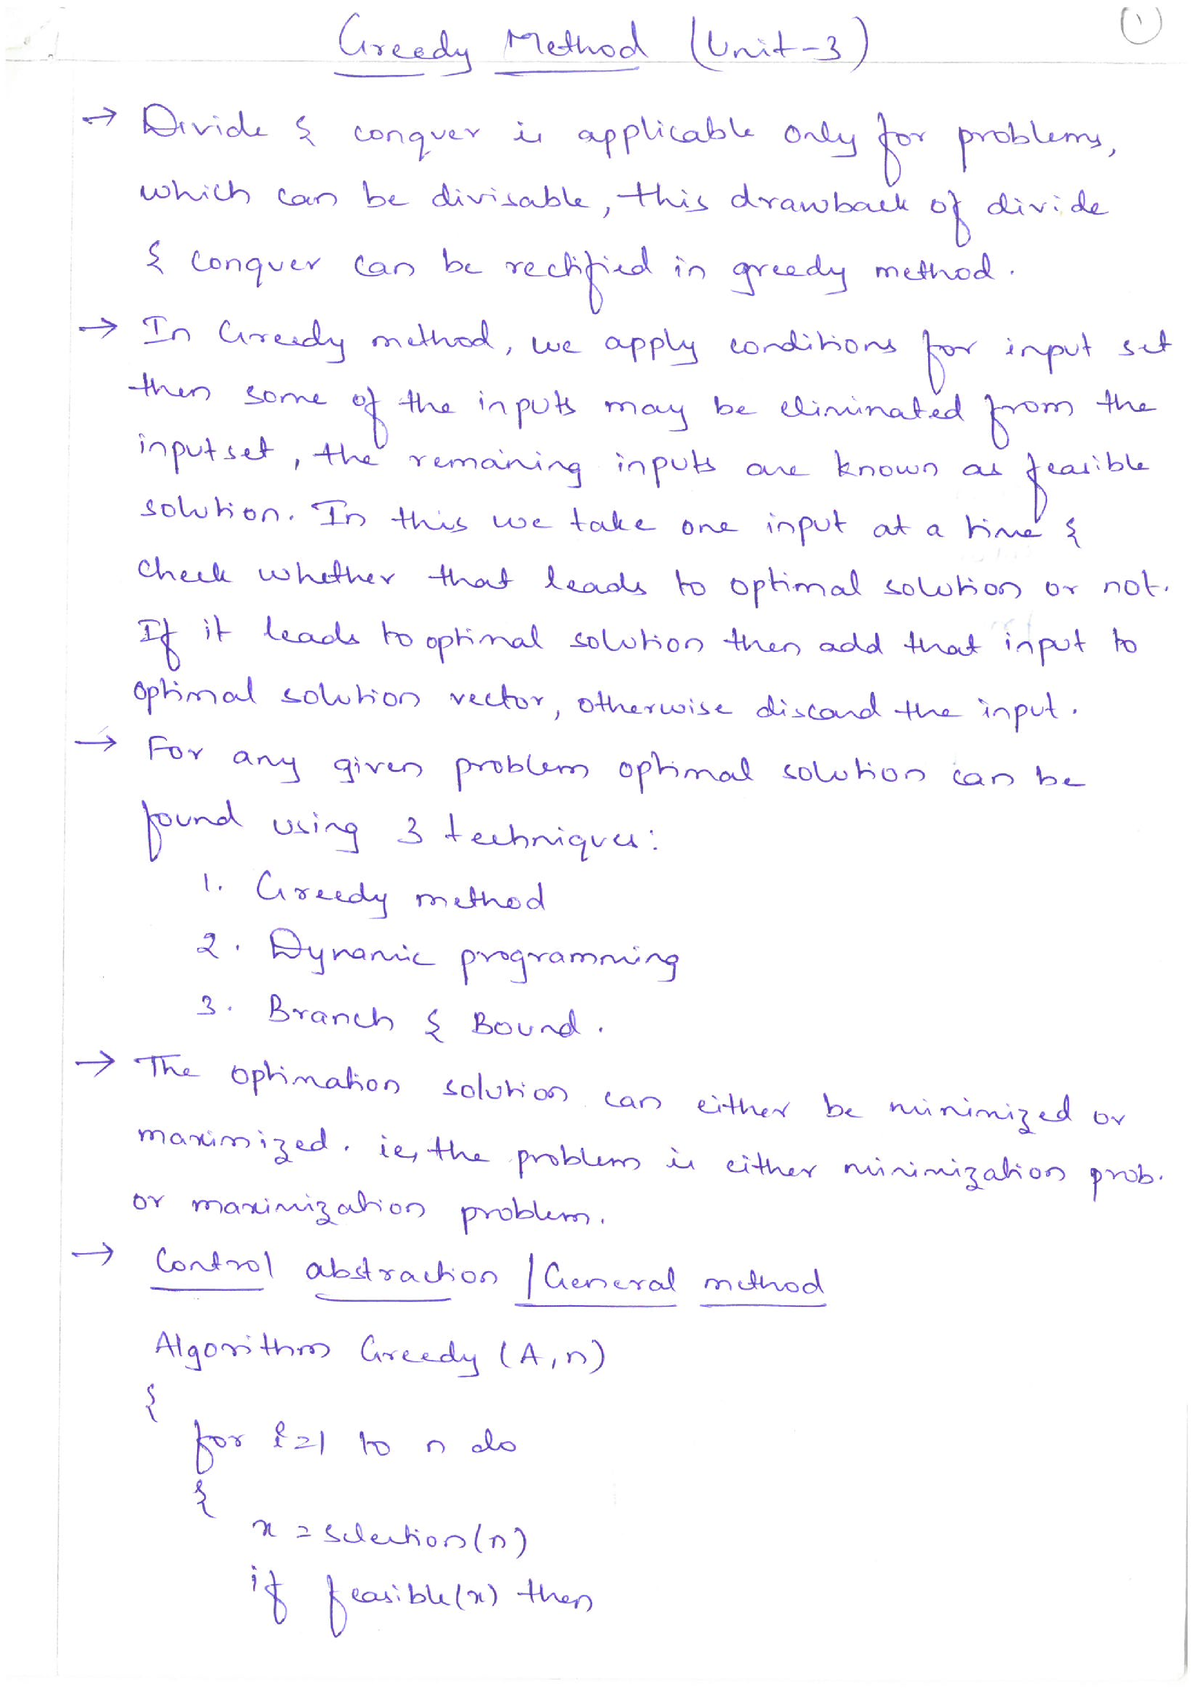 Greedy Method (Unit-3)
1
→ Divide & conquer is applicable only for problems,
which can be divisable, this drawback of divide
& conquer can be rectified in greedy method.
→ In Greedy method, we apply conditions for input set
then some of the inputs may be eliminated from the
inputset, the remaining inputs are known as feasible
solution. In this we take one input at a time &
check whether that leads to optimal solution or not.
If it leads to optimal solution then add that input to
optimal solution vector, otherwise discard the input.
→ For any given problem optimal solution can be
found using 3 techniques:
1. Greedy method
2. Dynamic programming
3. Branch & Bound.
→ The optimation solution can either be minimized or
maximized. ie, the problem is either minimization prob.
or maximization problem.
→ Control abstraction / General method
Algorithm Greedy (A, n)
{
for i=1 to n do
{
x = selection(n)
if feasible(x) then